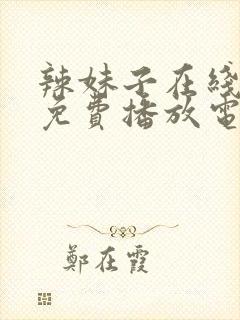 辣妹子在线
免費播放電
鄭在霞